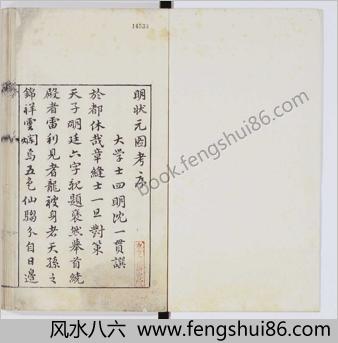 14534
明狀元圖考序
大学士四明沈一貫譔
於都休哉章縫士一旦對策
天子明廷六字軟題褎然舉首繞
殿者雷利見者龍被身者天孫之
錦祥雲爲五色仙驂尔自日邊
book.fengshui86.com
风水八六 www.fengshui86.com